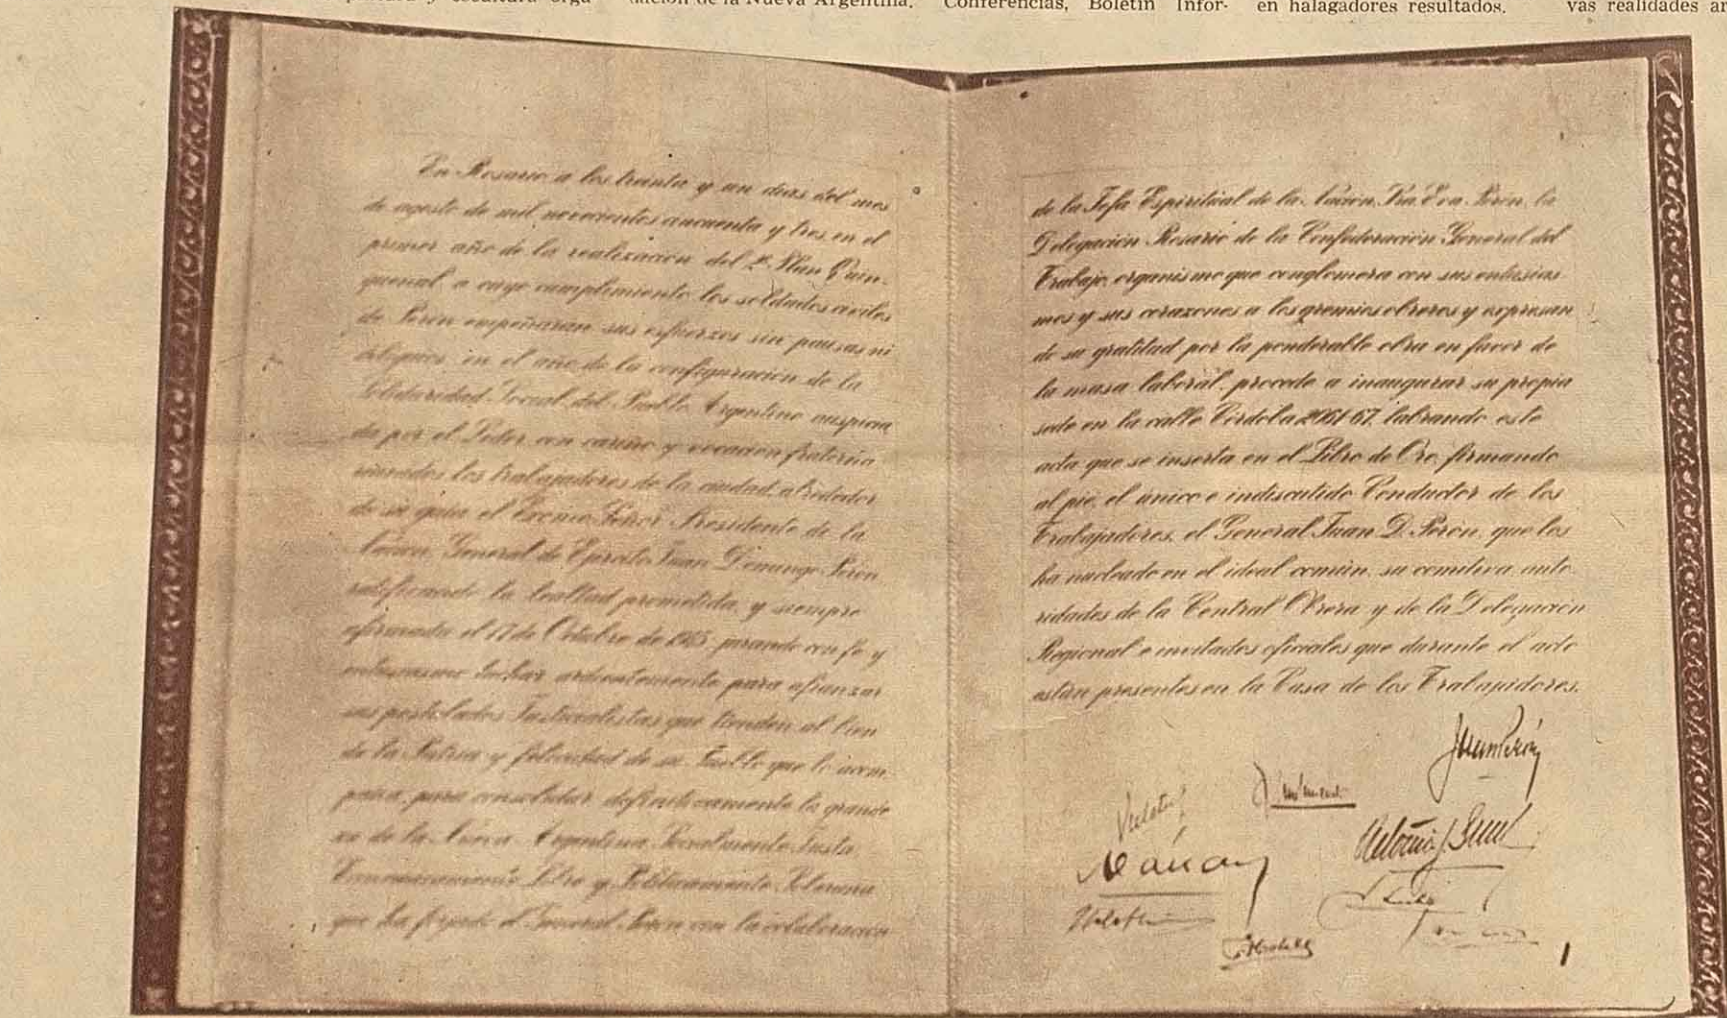 escultura
de la Nueva Argentina.
Conferencias, Boletín Infor-
en halagadores resultados.
vas realidades
En Rosario a los treinta y un días del mes
de agosto de mil novecientos cincuenta y tres en el
primer año de la realización del 2º Plan Quin-
quenal a cuyo cumplimiento los soldados civiles
de Perón empeñarán sus esfuerzos sin pausas ni
en el año de la configuración de la
Solidaridad Social del Pueblo Argentino auspicia
da por el Líder con cariño y vocación fraterna
reunidos los trabajadores de la ciudad alrededor
de su guía el Excmo. Señor Presidente de la
Nación General de Ejército Juan Domingo Perón
ratificando la lealtad prometida y siempre
afirmada el 17 de Octubre de 1945 jurando con fe y
entusiasmo luchar ardientemente para afianzar
sus postulados Justicialistas que tienden al bien
de la Patria y felicidad de su Pueblo que lo acom
paña para consolidar definitivamente la grande
za de la Nueva Argentina Socialmente Justa
Económicamente Libre y Políticamente Soberana
que ha forjado el General Perón con la colaboración
de la Jefa Espiritual de la Nación Sra. Eva Perón, la
Delegación Rosario de la Confederación General del
Trabajo, organismo que conglomera con sus entusias
mos y sus corazones a los gremios obreros y expresan
do su gratitud por la ponderable obra en favor de
la masa laboral, procede a inaugurar su propia
sede en la calle Córdoba 2061-67, labrando este
acta que se inserta en el Libro de Oro, firmando
al pie, el único e indiscutido Conductor de los
Trabajadores, el General Juan D. Perón, que los
ha nucleado en el ideal común, su comitiva, auto
ridades de la Central Obrera y de la Delegación
Regional e invitados oficiales que durante el acto
están presentes en la Casa de los Trabajadores.
Juan Perón